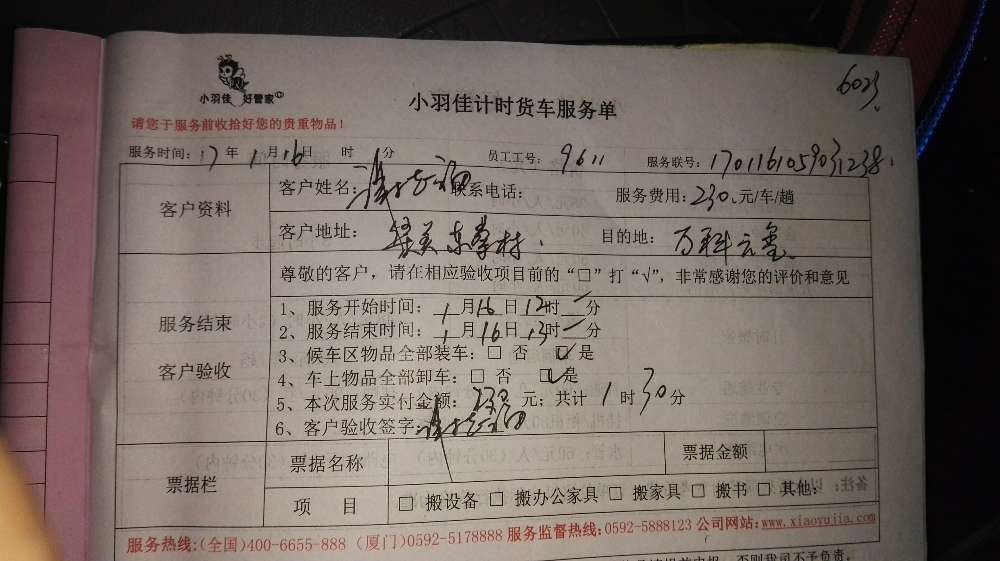 6023
小羽佳 好管家
小羽佳计时货车服务单
请您于服务前收拾好您的贵重物品！
服务时间：17年1月16日 时 分 员工工号：9611 服务联号：1701161059031238
客户资料
客户姓名： 联系电话： 服务费用：230元/车/趟
客户地址： 东 村 目的地：万科云玺
尊敬的客户，请在相应验收项目前的“□”打“√”，非常感谢您的评价和意见
服务结束
客户验收
1、服务开始时间：1月16日12时 分
2、服务结束时间：1月16日13时 分
3、候车区物品全部装车：□ 否 ☑ 是
4、车上物品全部卸车：□ 否 ☑ 是
5、本次服务实付金额：230元；共计1时30分
6、客户验收签字：
票据栏
票据名称 票据金额
项 目 □ 搬设备 □ 搬办公家具 □ 搬家具 □ 搬书 □ 其他：
服务热线：(全国)400-6655-888 (厦门)0592-5178888 服务监督热线：0592-5888123 公司网站：www.xiaoyujia.com
否则我司不予负责。